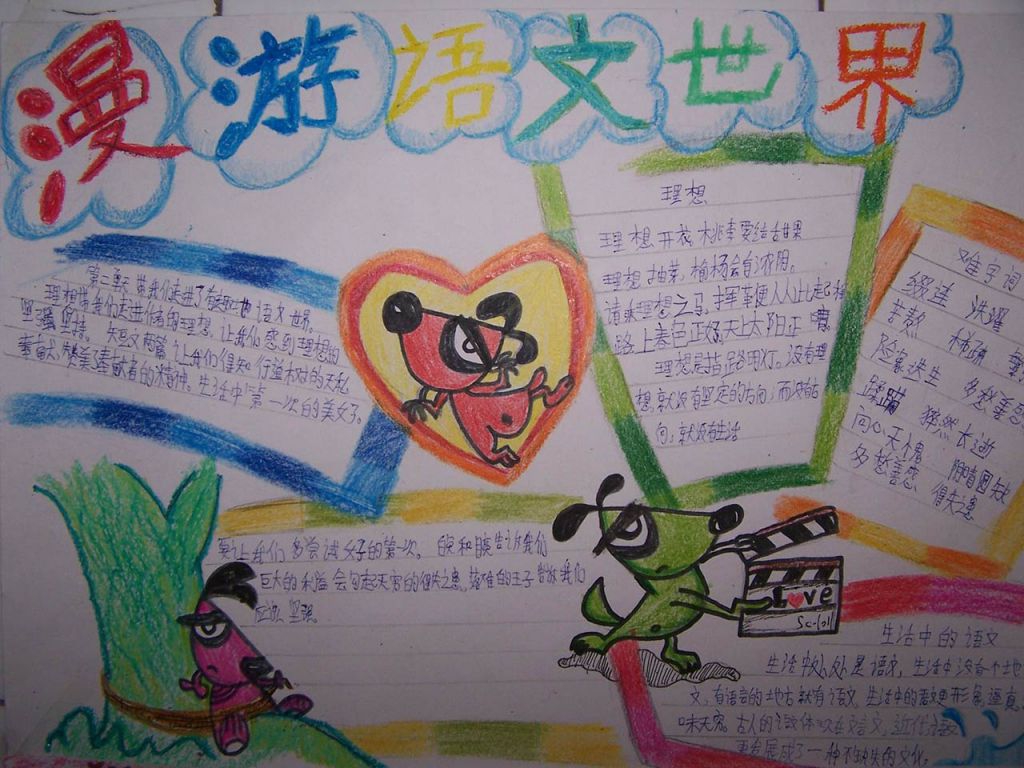 漫游语文世界
第二单元带我们走进了有趣的语文世界。
理想带我们走进作者的理想，让我们感到理想的
坚强坚持。短文两篇让我们得知行道树的无私
奉献，赞美奉献者的精神。生活中第一次的美好。
要让我们多尝试好的第一次。
告诉我们
巨大的利益会勾起天定的得失之患。落难的王子告诉我们
应该坚强
理想
理想开花，桃李要结甜果
理想抽芽，榆杨会有浓阴。
请乘理想之马，挥鞭从此起程
路上春色正好，天上太阳正晴。
理想是指路明灯。没有理
想，就没有坚定的方向；而没有方
向，就没有生活
难字词
缀连 洗濯
稀疏
险象迭生 多愁善感
蹒跚 猝然长逝
问心无愧 阴晴圆缺
多愁善感 得失之患
Love
生活中的语文
生活中处处是语文，生活中没有一个地
文，有语言的地方就有语文。生活中的语文更形象逼真，
味无穷。古人的
文言文，近代
更发展成了一种不缺失的文化。